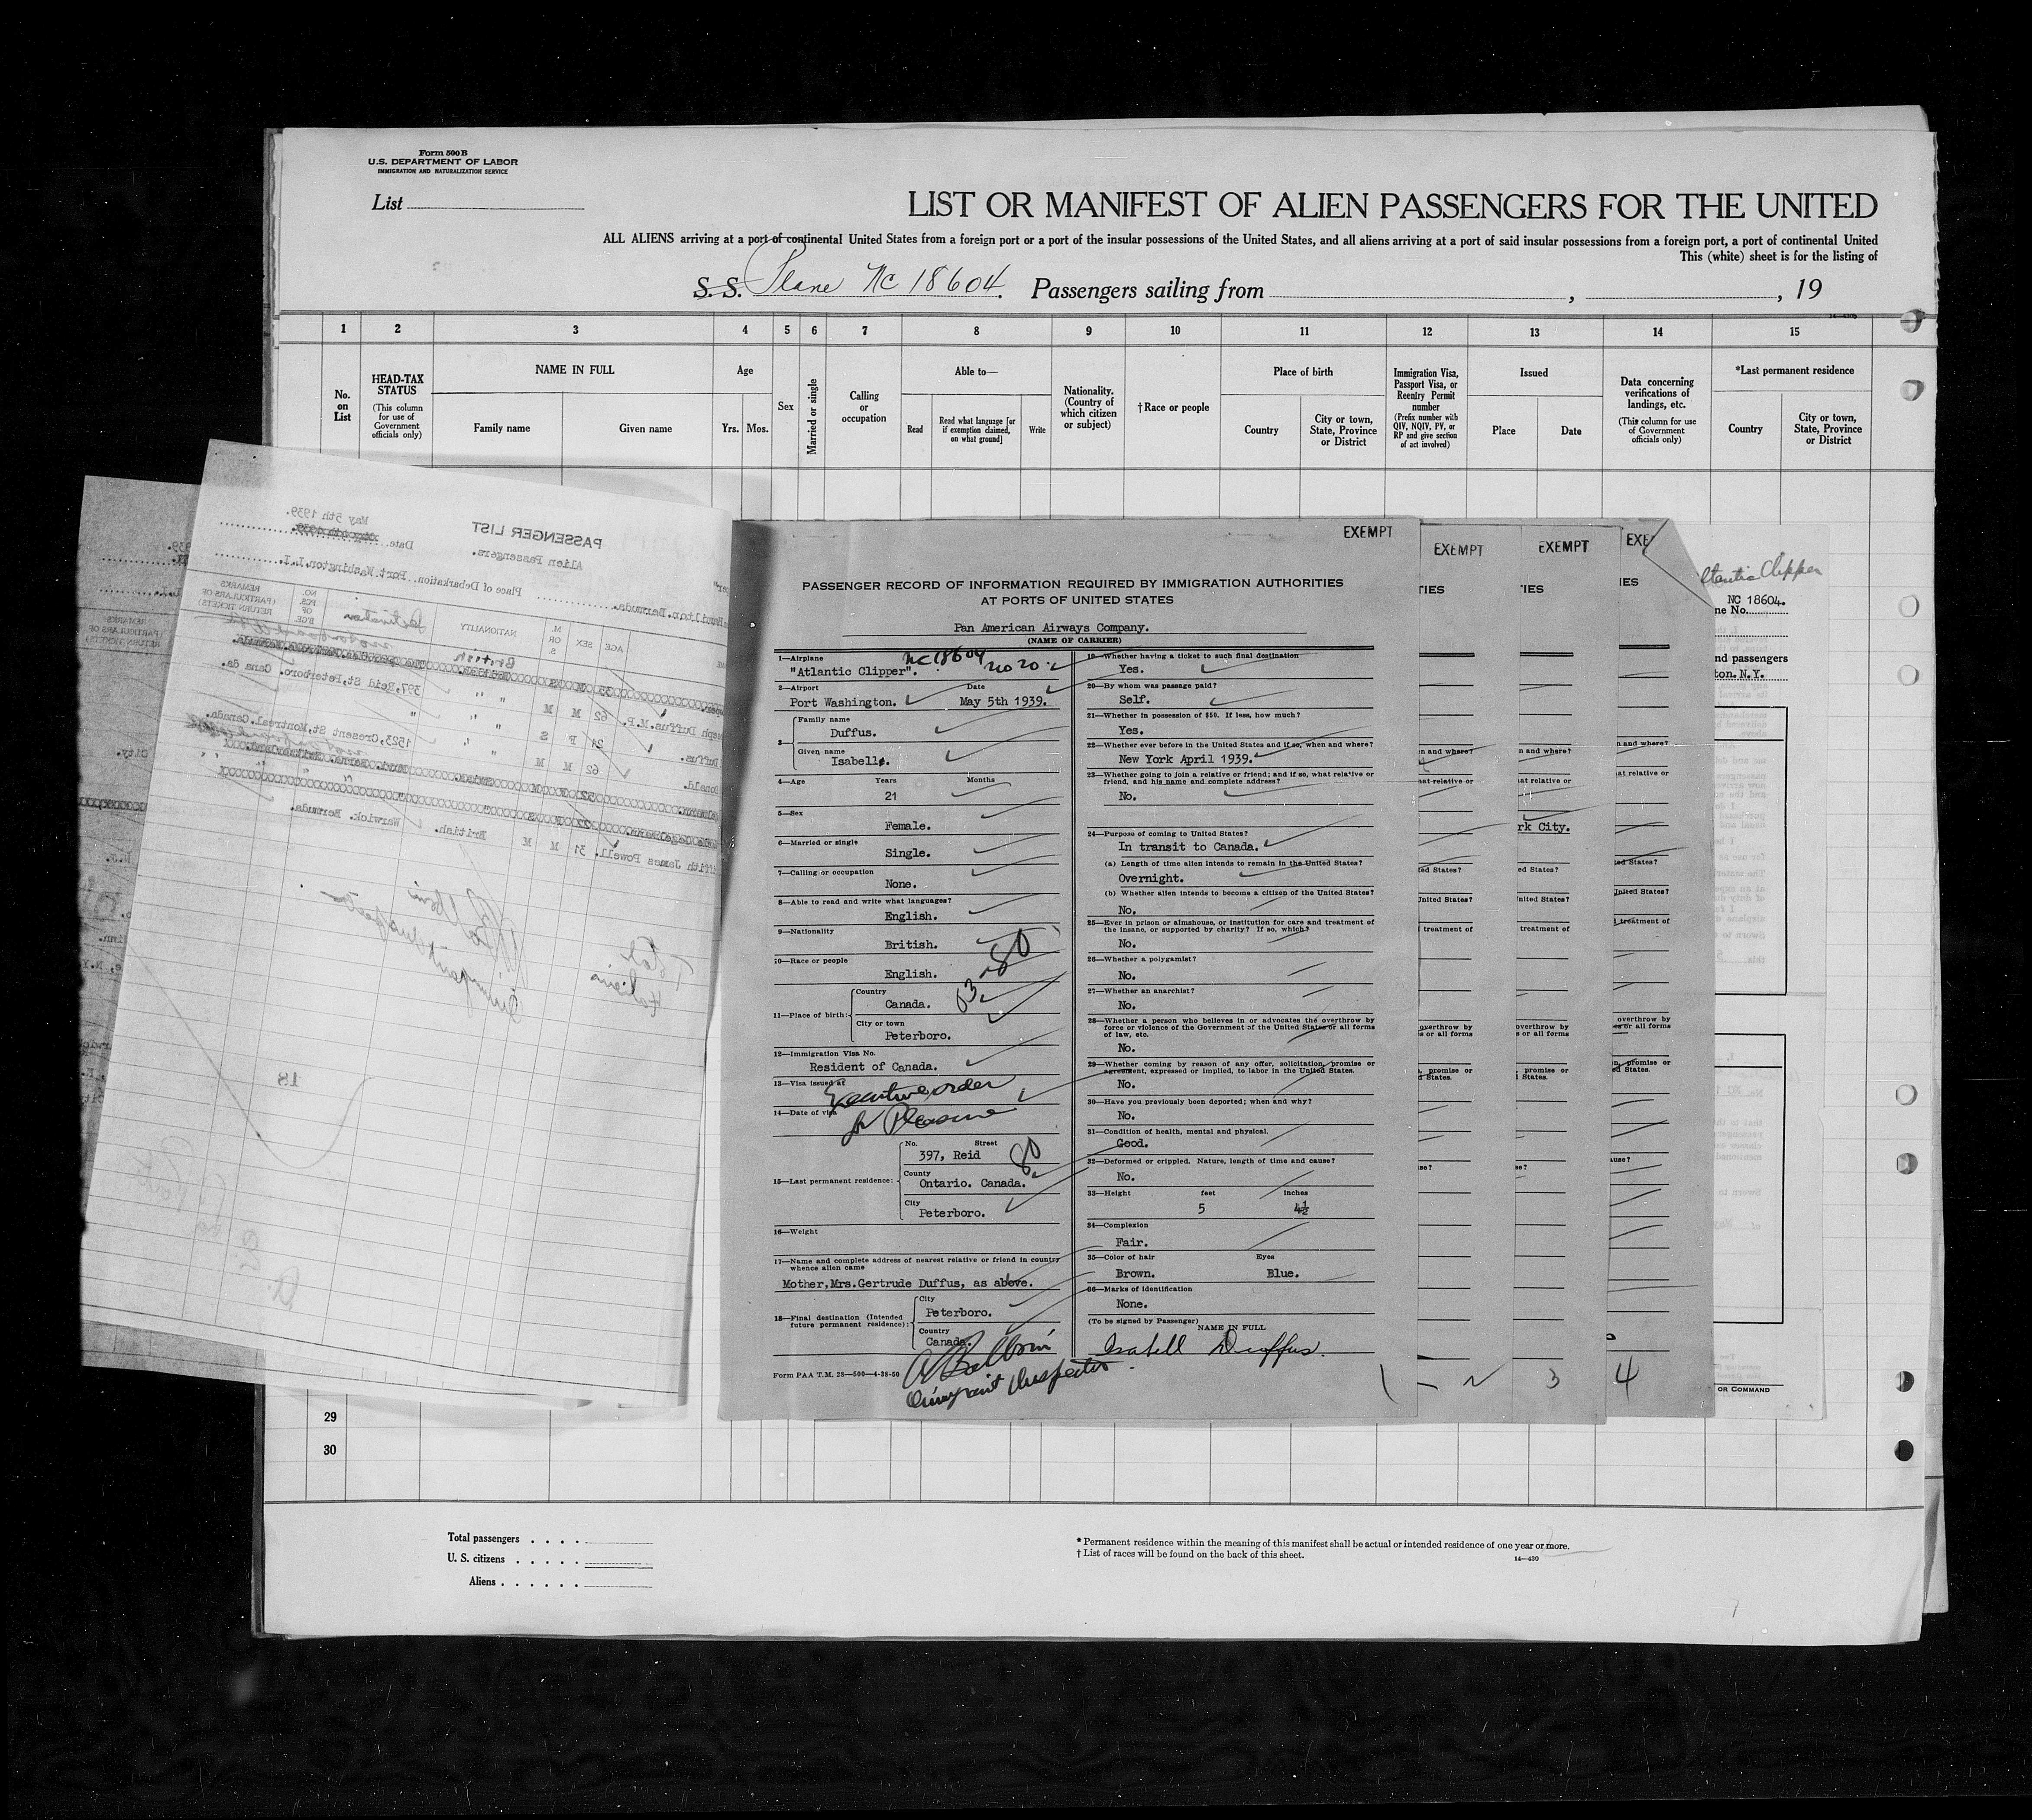 Form 500B
U.S. DEPARTMENT OF LABOR
IMMIGRATION AND NATURALIZATION SERVICE
List
LIST OR MANIFEST OF ALIEN PASSENGERS FOR THE UNITED
ALL ALIENS arriving at a port of continental United States from a foreign port or a port of the insular possessions of the United States, and all aliens arriving at a port of said insular possessions from a foreign port, a port of continental United
This (white) sheet is for the listing of
S.S. Plane NC 18604. Passengers sailing from , , 19
1 2 3 4 5 6 7 8 9 10 11 12 13 14 15
No. on List
HEAD-TAX STATUS
(This column for use of Government officials only)
NAME IN FULL
Family name Given name
Age
Yrs. Mos.
Sex
Married or single
Calling or occupation
Able to—
Read
Read what language [or if exemption claimed, on what ground]
Write
Nationality. (Country of which citizen or subject)
†Race or people
Place of birth
Country
City or town, State, Province or District
Immigration Visa, Passport Visa, or Reentry Permit number
(Prefix number with QIV, NQIV, PV, or RP and give section of act involved)
Issued
Place Date
Data concerning verifications of landings, etc.
(This column for use of Government officials only)
*Last permanent residence
Country
City or town, State, Province or District
PASSENGER LIST
Alien Passengers.
Date. May 5th 1939.
Hamilton, Bermuda. Place of Debarkation. Port Washington.L.I.
AGE SEX M. OR S. NATIONALITY Destination NO. OF PCS. B'GE REMARKS (PARTICULARS OF RETURN TICKETS)
British
Joseph Duffus.M.P. 62 M M " 397, Reid St, Peterboro. Canada.
Duffus. 21 F S " "
Donald. 62 M M " 1523, Cresent St, Montreal. Canada.
Griffith James Powell. 31 M M British. Warwick. Bermuda.
Immigrant Inspector
18
EXEMPT
PASSENGER RECORD OF INFORMATION REQUIRED BY IMMIGRATION AUTHORITIES
AT PORTS OF UNITED STATES
Pan American Airways Company.
(NAME OF CARRIER)
1—Airplane NC18604
"Atlantic Clipper".
2—Airport Date
Port Washington. May 5th 1939.
3— Family name
Duffus.
Given name
Isabell.
4—Age Years Months
21
5—Sex
Female.
6—Married or single
Single.
7—Calling or occupation
None.
8—Able to read and write what languages?
English.
9—Nationality
British.
10—Race or people
English.
80
11—Place of birth: Country
Canada.
City or town
Peterboro.
12—Immigration Visa No.
Resident of Canada.
13—Visa issued at
Executive order
14—Date of visa
for Pleasure
15—Last permanent residence: No. Street
397, Reid
80
County
Ontario. Canada.
City
Peterboro.
16—Weight
17—Name and complete address of nearest relative or friend in country whence alien came
Mother,Mrs.Gertrude Duffus, as above.
18—Final destination (Intended future permanent residence): City
Peterboro.
Country
Canada.
Form PAA T.M. 28—500—4-38-50
Immigrant Inspector
19—Whether having a ticket to such final destination
Yes.
20—By whom was passage paid?
Self.
21—Whether in possession of $50. If less, how much?
Yes.
22—Whether ever before in the United States and if so, when and where?
New York April 1939.
23—Whether going to join a relative or friend; and if so, what relative or friend, and his name and complete address?
No.
24—Purpose of coming to United States?
In transit to Canada.
(a) Length of time alien intends to remain in the United States?
Overnight.
(b) Whether alien intends to become a citizen of the United States?
No.
25—Ever in prison or almshouse, or institution for care and treatment of the insane, or supported by charity? If so, which?
No.
26—Whether a polygamist?
No.
27—Whether an anarchist?
No.
28—Whether a person who believes in or advocates the overthrow by force or violence of the Government of the United States or all forms of law, etc.
No.
29—Whether coming by reason of any offer, solicitation, promise or agreement, expressed or implied, to labor in the United States.
No.
30—Have you previously been deported; when and why?
No.
31—Condition of health, mental and physical.
Good.
32—Deformed or crippled. Nature, length of time and cause?
No.
33—Height feet inches
5 4½
34—Complexion
Fair.
35—Color of hair Eyes
Brown. Blue.
36—Marks of identification
None.
(To be signed by Passenger)
NAME IN FULL
Isabell Duffus.
EXEMPT
EXEMPT
EXE
rk City.
3 4
Atlantic Clipper
NC 18604.
ne No.
nd passengers
ton. N.Y.
OR COMMAND
29
30
Total passengers
U. S. citizens
Aliens
* Permanent residence within the meaning of this manifest shall be actual or intended residence of one year or more.
† List of races will be found on the back of this sheet.
14—430